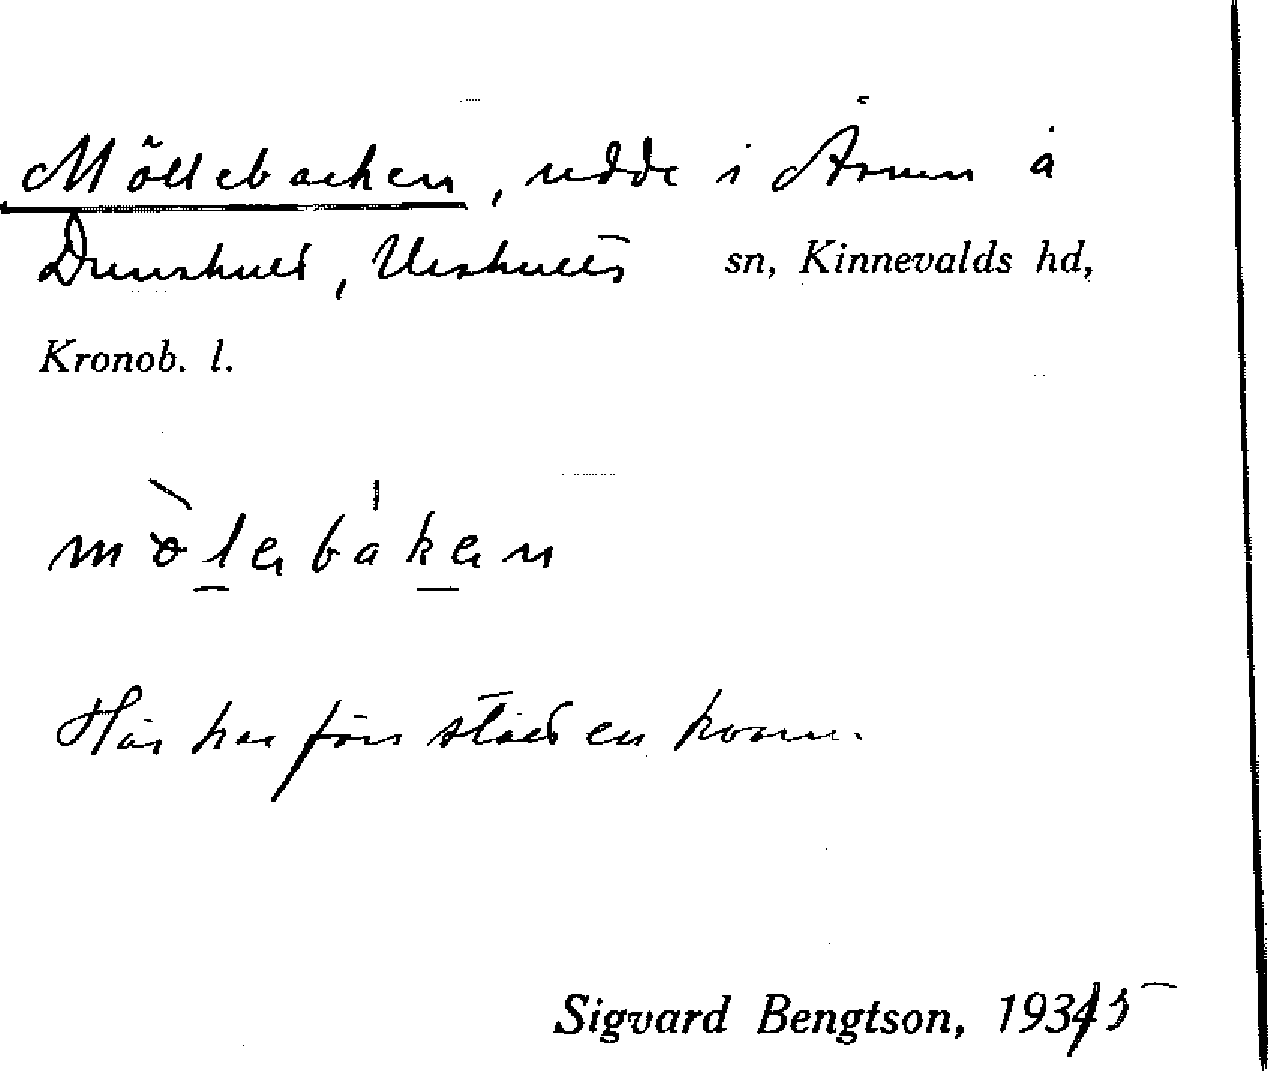 Möllebacken, udde i Åsnen å
Dunshult, Urshults sn, Kinnevalds hd,
Kronob. l.
mòlebaken
Här har förr stått en kvarn.
Sigvard Bengtson, 1935